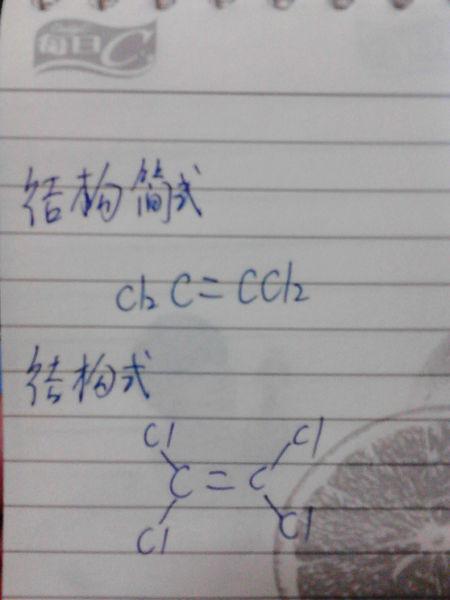 每日C
结构简式
Cl₂C=CCl₂
结构式
Cl Cl
C=C
Cl Cl